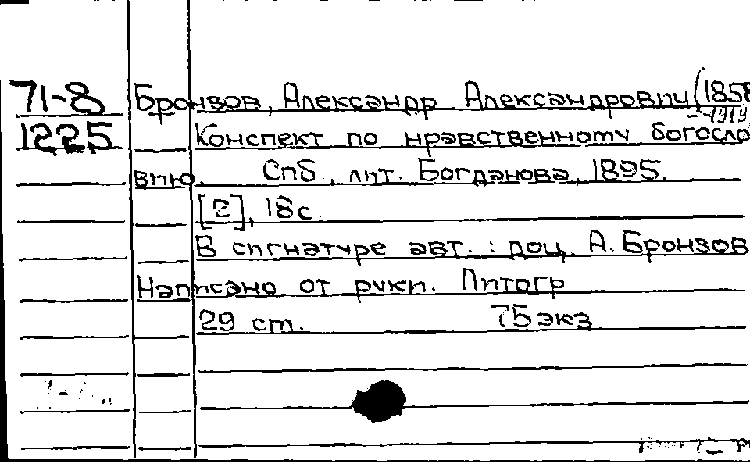 71-8 Бронзов, Александр Александрович (1858
-1919)
1225 Конспект по нравственному богосло
вию. Спб, лит. Богданова, 1895.
[2], 18с.
В сигнатуре авт.: доц. А. Бронзов
Написано от руки. Литогр
29 cm. 75 экз